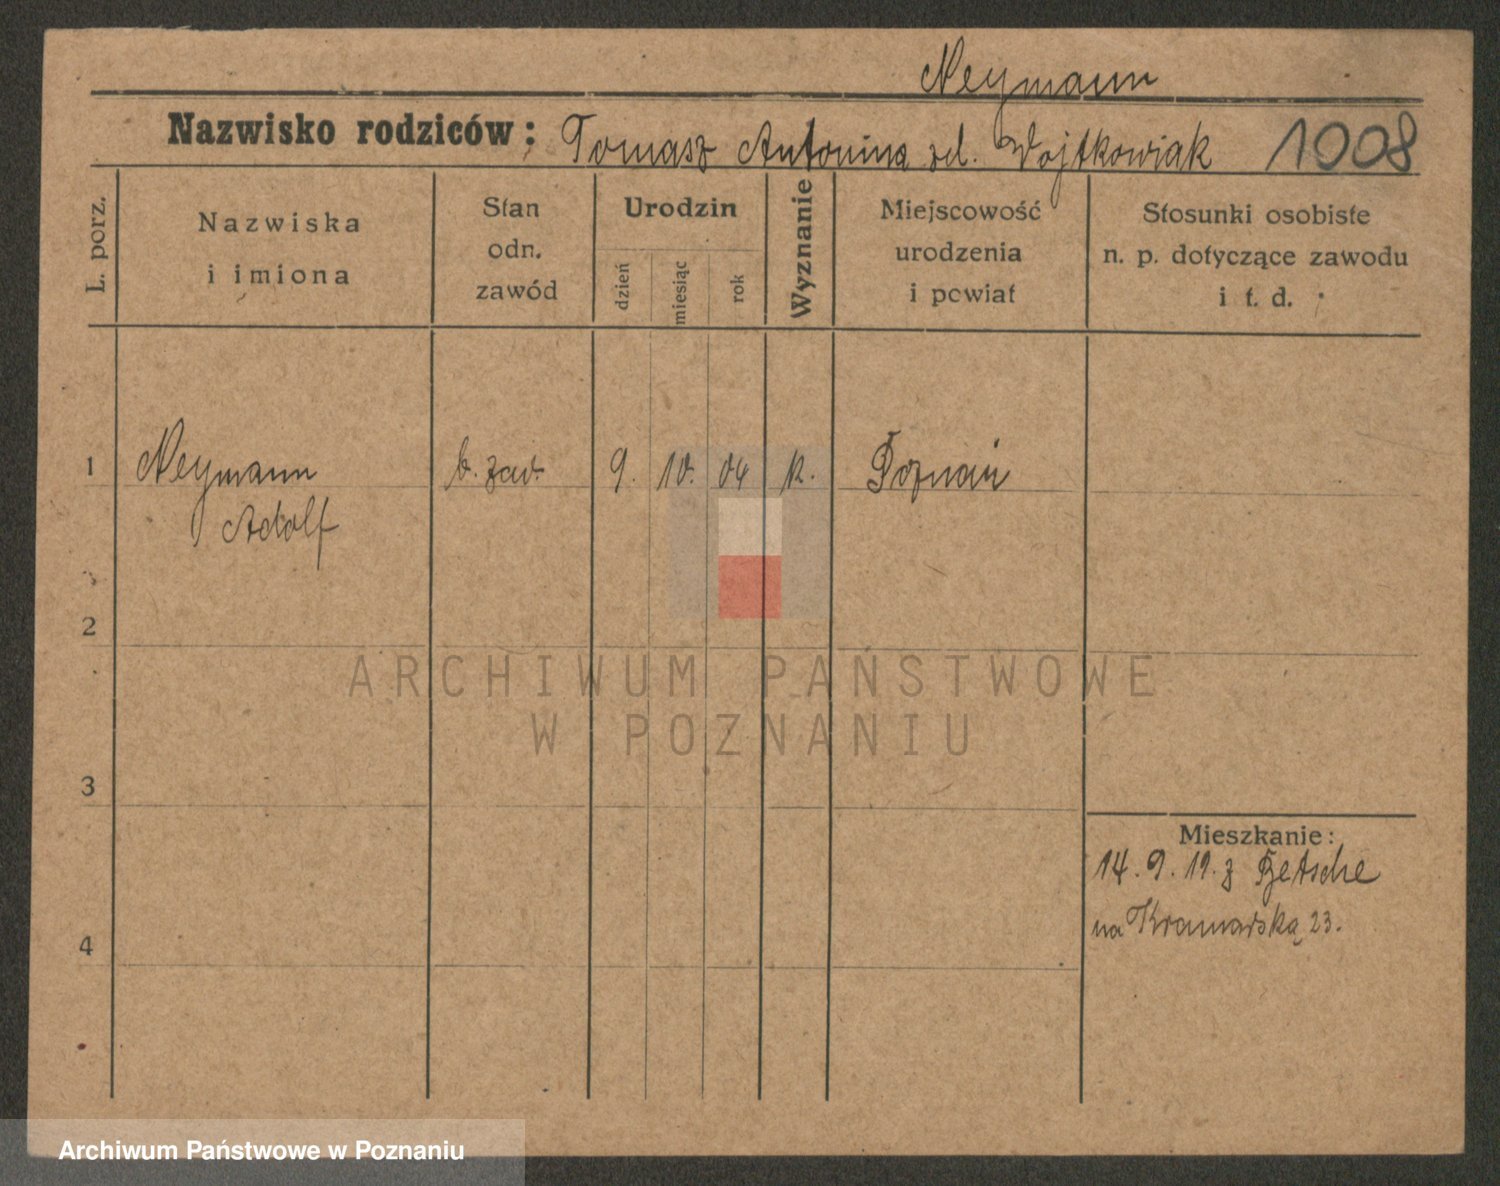 Neymann
Nazwisko rodziców: Tomasz Antonina zd. Wojtkowiak 1008
L. porz.
Nazwiska
i imiona
Stan
odn.
zawód
Urodzin
dzień
miesiąc
rok
Wyznanie
Miejscowość
urodzenia
i powiat
Stosunki osobiste
n. p. dotyczące zawodu
i t. d.
1 Neymann b. zaw. 9. 10. 04 k. Poznań
Adolf
2
3
4
Mieszkanie:
14. 9. 19. z Betsche
na Kramarską 23.
ARCHIWUM PAŃSTWOWE
W POZNANIU
Archiwum Państwowe w Poznaniu